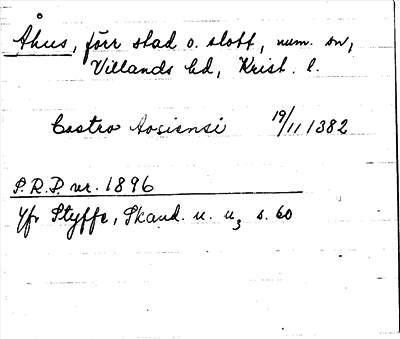 Åhus, förr stad o. slott, num. sn,
Villands hd, Krist. l.
Castro Aosiensi 19/11 1382
S.R.P. nr. 1896
Jfr Styffe, Skand. u. u3 s. 60